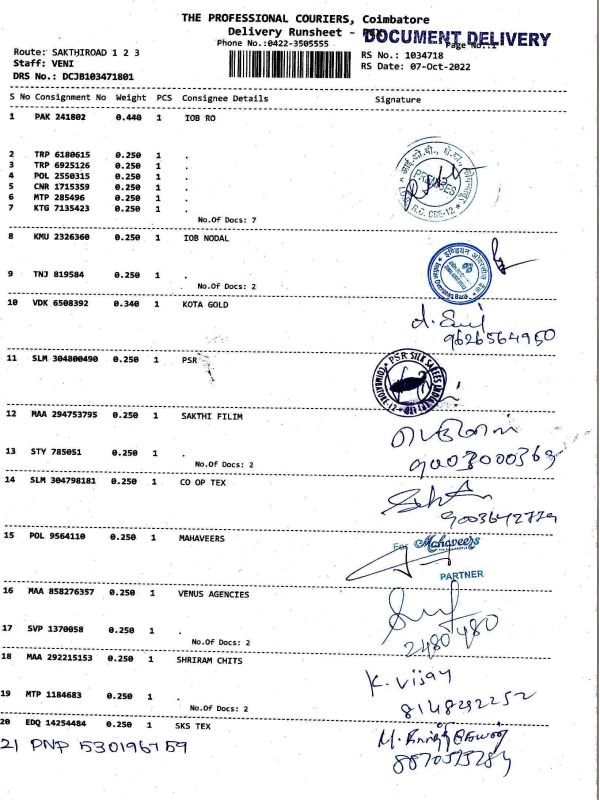 THE PROFESSIONAL COURIERS, Coimbatore
Delivery Runsheet -
DOCUMENT DELIVERY
Phone No.:0422-3505555
Page No.:1
Route: SAKTHIROAD 1 2 3
RS No.: 1034718
Staff: VENI
RS Date: 07-Oct-2022
DRS No.: DCJB103471801
S No Consignment No Weight PCS Consignee Details Signature
1 PAK 241802 0.440 1 IOB RO
2 TRP 6180615 0.250 1 .
3 TRP 6925126 0.250 1 .
4 POL 2550315 0.250 1 .
5 CNR 1715359 0.250 1 .
6 MTP 285496 0.250 1 .
7 KTG 7135423 0.250 1 .
No.Of Docs: 7
PREMISES
R.O. CBE-12
8 KMU 2326360 0.250 1 IOB NODAL
9 TNJ 819584 0.250 1 .
No.Of Docs: 2
इण्डियन ओवरसीज बैंक
Indian Overseas Bank
10 VDK 6508392 0.340 1 KOTA GOLD
9626564950
11 SLM 304800490 0.250 1 PSR
PSR SILK SAREES
COIMBATORE-12
12 MAA 294753795 0.250 1 SAKTHI FILIM
13 STY 785051 0.250 1 .
No.Of Docs: 2
9003000369
14 SLM 304798181 0.250 1 CO OP TEX
9003642779
15 POL 9564110 0.250 1 MAHAVEERS
For Mahaveers
PARTNER
16 MAA 858276357 0.250 1 VENUS AGENCIES
17 SVP 1370058 0.250 1 .
No.Of Docs: 2
2480480
18 MAA 292215153 0.250 1 SHRIRAM CHITS
K. Vijay
19 MTP 1184683 0.250 1 .
No.Of Docs: 2
8148292252
20 EDQ 14254484 0.250 1 SKS TEX
21 PNP 530196759